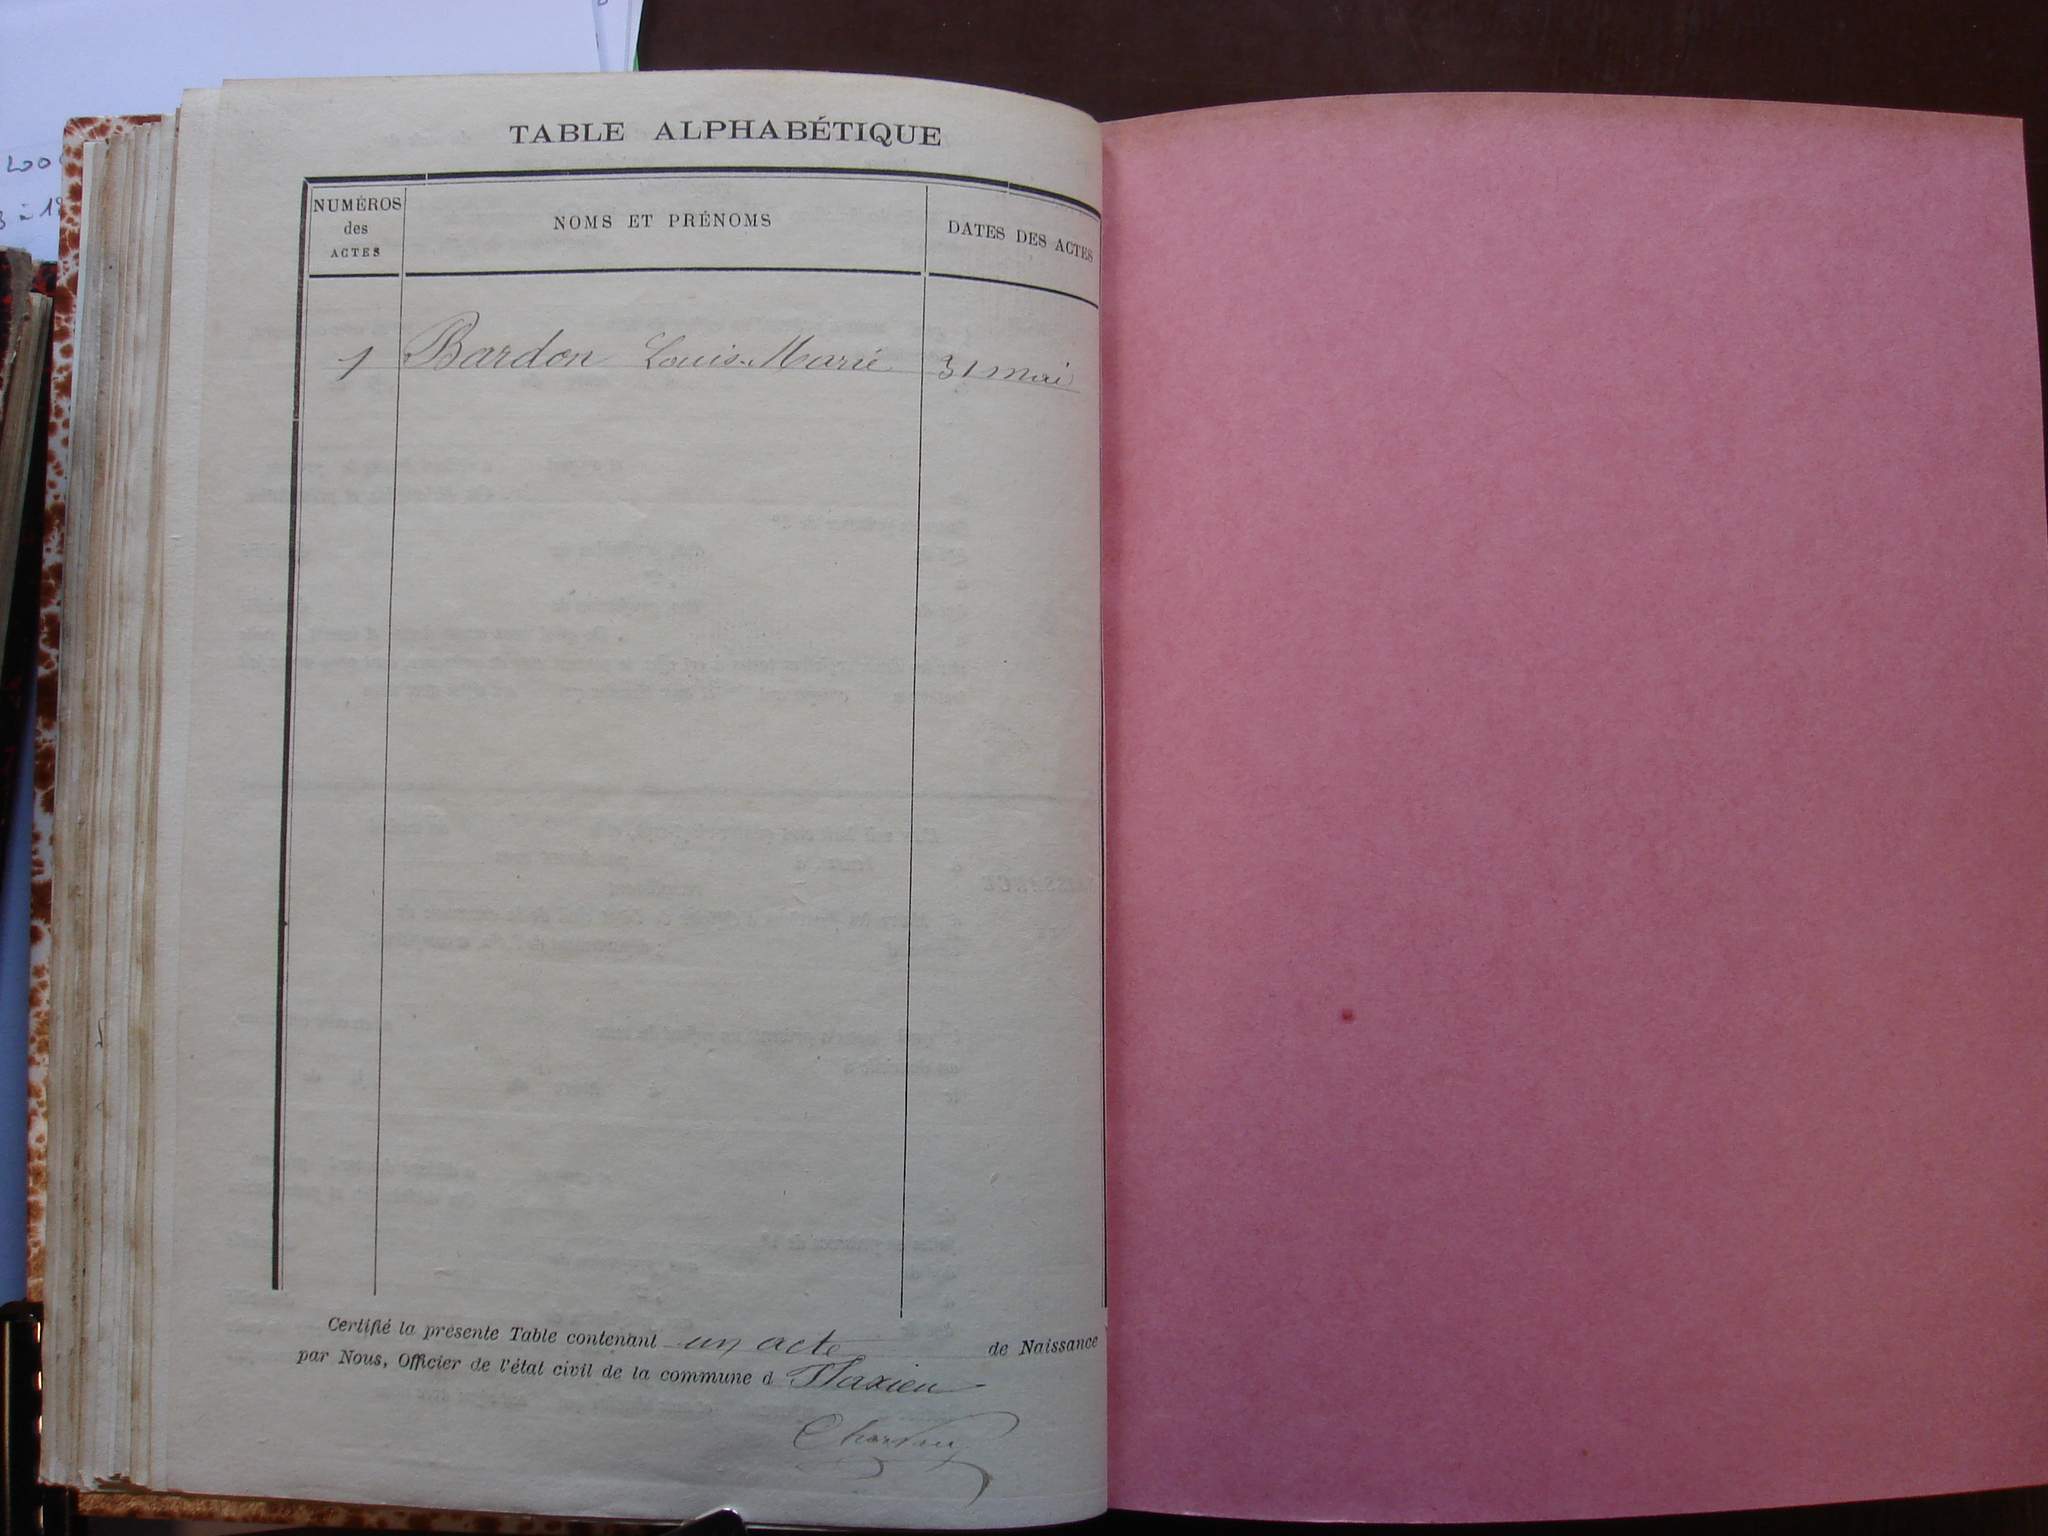 TABLE ALPHABÉTIQUE
NUMÉROS des ACTES
NOMS ET PRÉNOMS
DATES DES ACTES
1 Bardon Louis-Marie 31 mai
Certifié la présente Table contenant un acte de Naissance
par Nous, Officier de l'état civil de la commune d